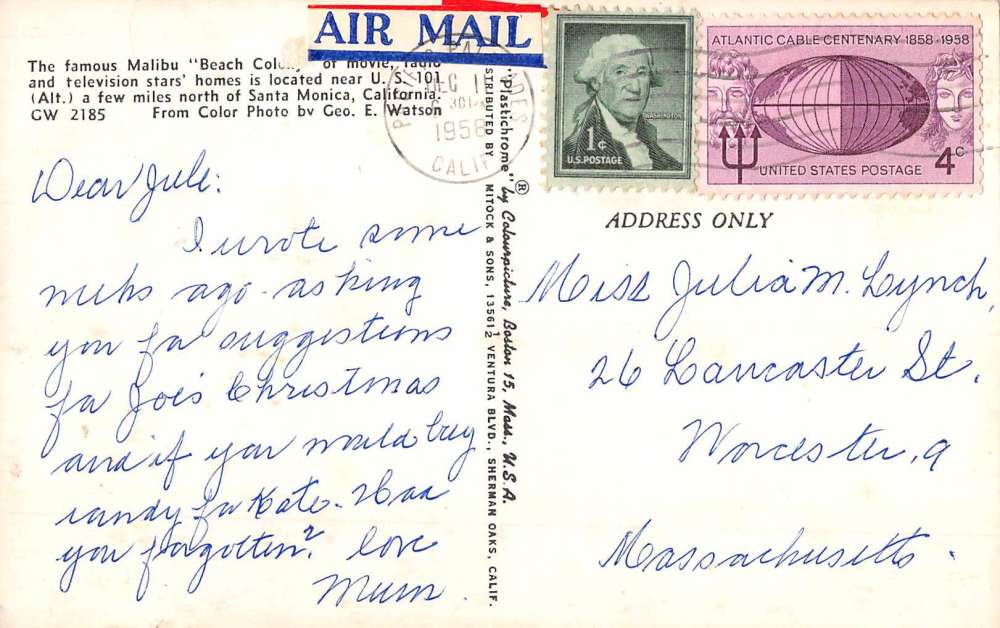 AIR MAIL
The famous Malibu "Beach Colony" of movie, radio
and television stars' homes is located near U. S. 101
(Alt.) a few miles north of Santa Monica, California.
GW 2185 From Color Photo by Geo. E. Watson
DEC 1
1958
CALIF
1¢
WASHINGTON
U.S. POSTAGE
ATLANTIC CABLE CENTENARY 1858-1958
UNITED STATES POSTAGE 4c
Dear Jule:
I wrote some
weeks ago asking
you for suggestions
for Joe's Christmas
and if you would buy
candy for Kate. Had
you forgotten?
Love
Mum
"Plastichrome" ® by Colourpicture, Boston 15, Mass., U.S.A.
DISTRIBUTED BY MITOCK & SONS, 13561½ VENTURA BLVD., SHERMAN OAKS, CALIF.
ADDRESS ONLY
Miss Julia M. Lynch,
26 Lancaster St.
Worcester, 9
Massachusetts.